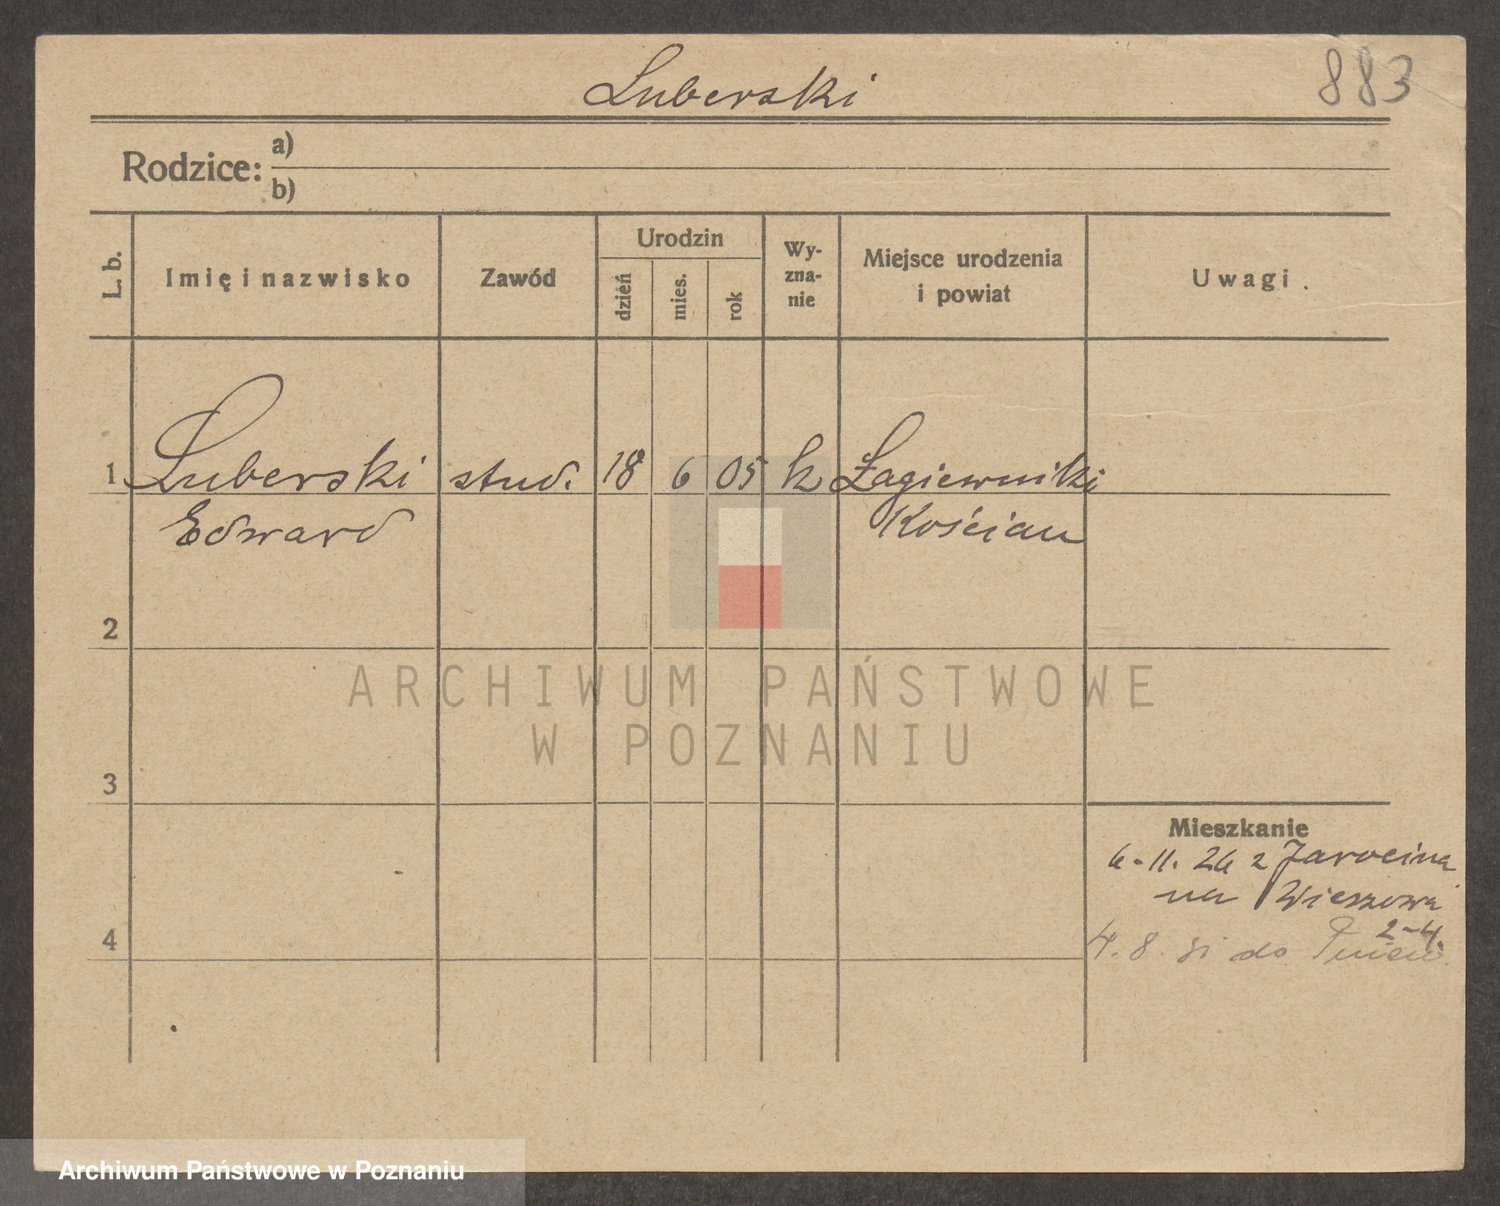 Luberski
883
Rodzice: a)
b)
L. b.
Imię i nazwisko
Zawód
Urodzin
dzień
mies.
rok
Wy-
zna-
nie
Miejsce urodzenia
i powiat
Uwagi.
1 Luberski stud. 18 6 05 k Łagiewniki
Edward Kościan
2
ARCHIWUM PAŃSTWOWE
W POZNANIU
3
Mieszkanie
6-11. 26 z Jarocina
na
2-4.
4
4. 8. do
Archiwum Państwowe w Poznaniu